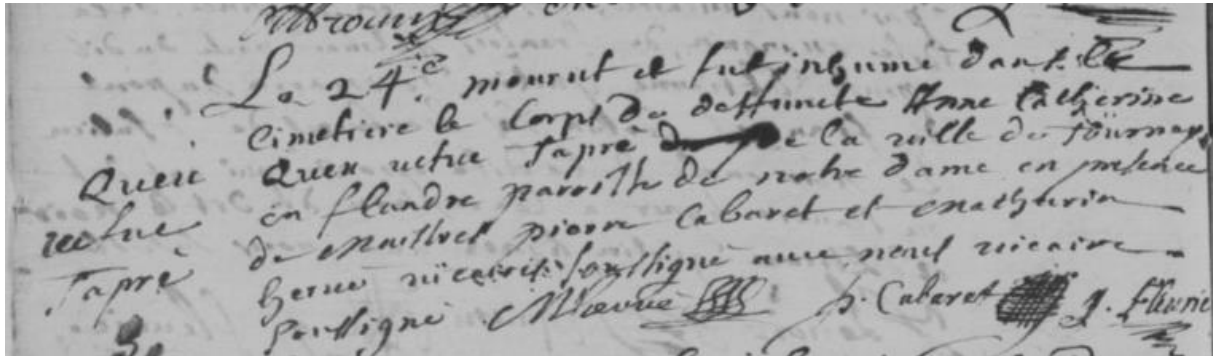 Le 24e. mourut et fut inhume dans le
cimetiere le Corps de deffuncte Anne Catherine
Queu vefue Tapré de la ville de Tournay
en flandre paroisse de notre dame en presence
de Maistres pierre Cabaret et Mathurin
herué soussigné auec nous vicaire
soussigné. M herué p. Cabaret J. Fleurie
Queu
vefue
Tapré